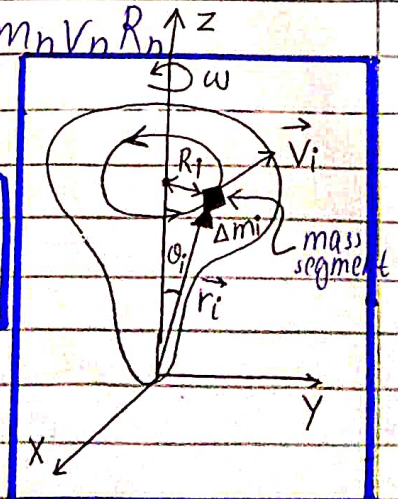 mnVnRn
Z
ω
R1
Vi
Δmi
mass
segment
θi
ri
Y
X